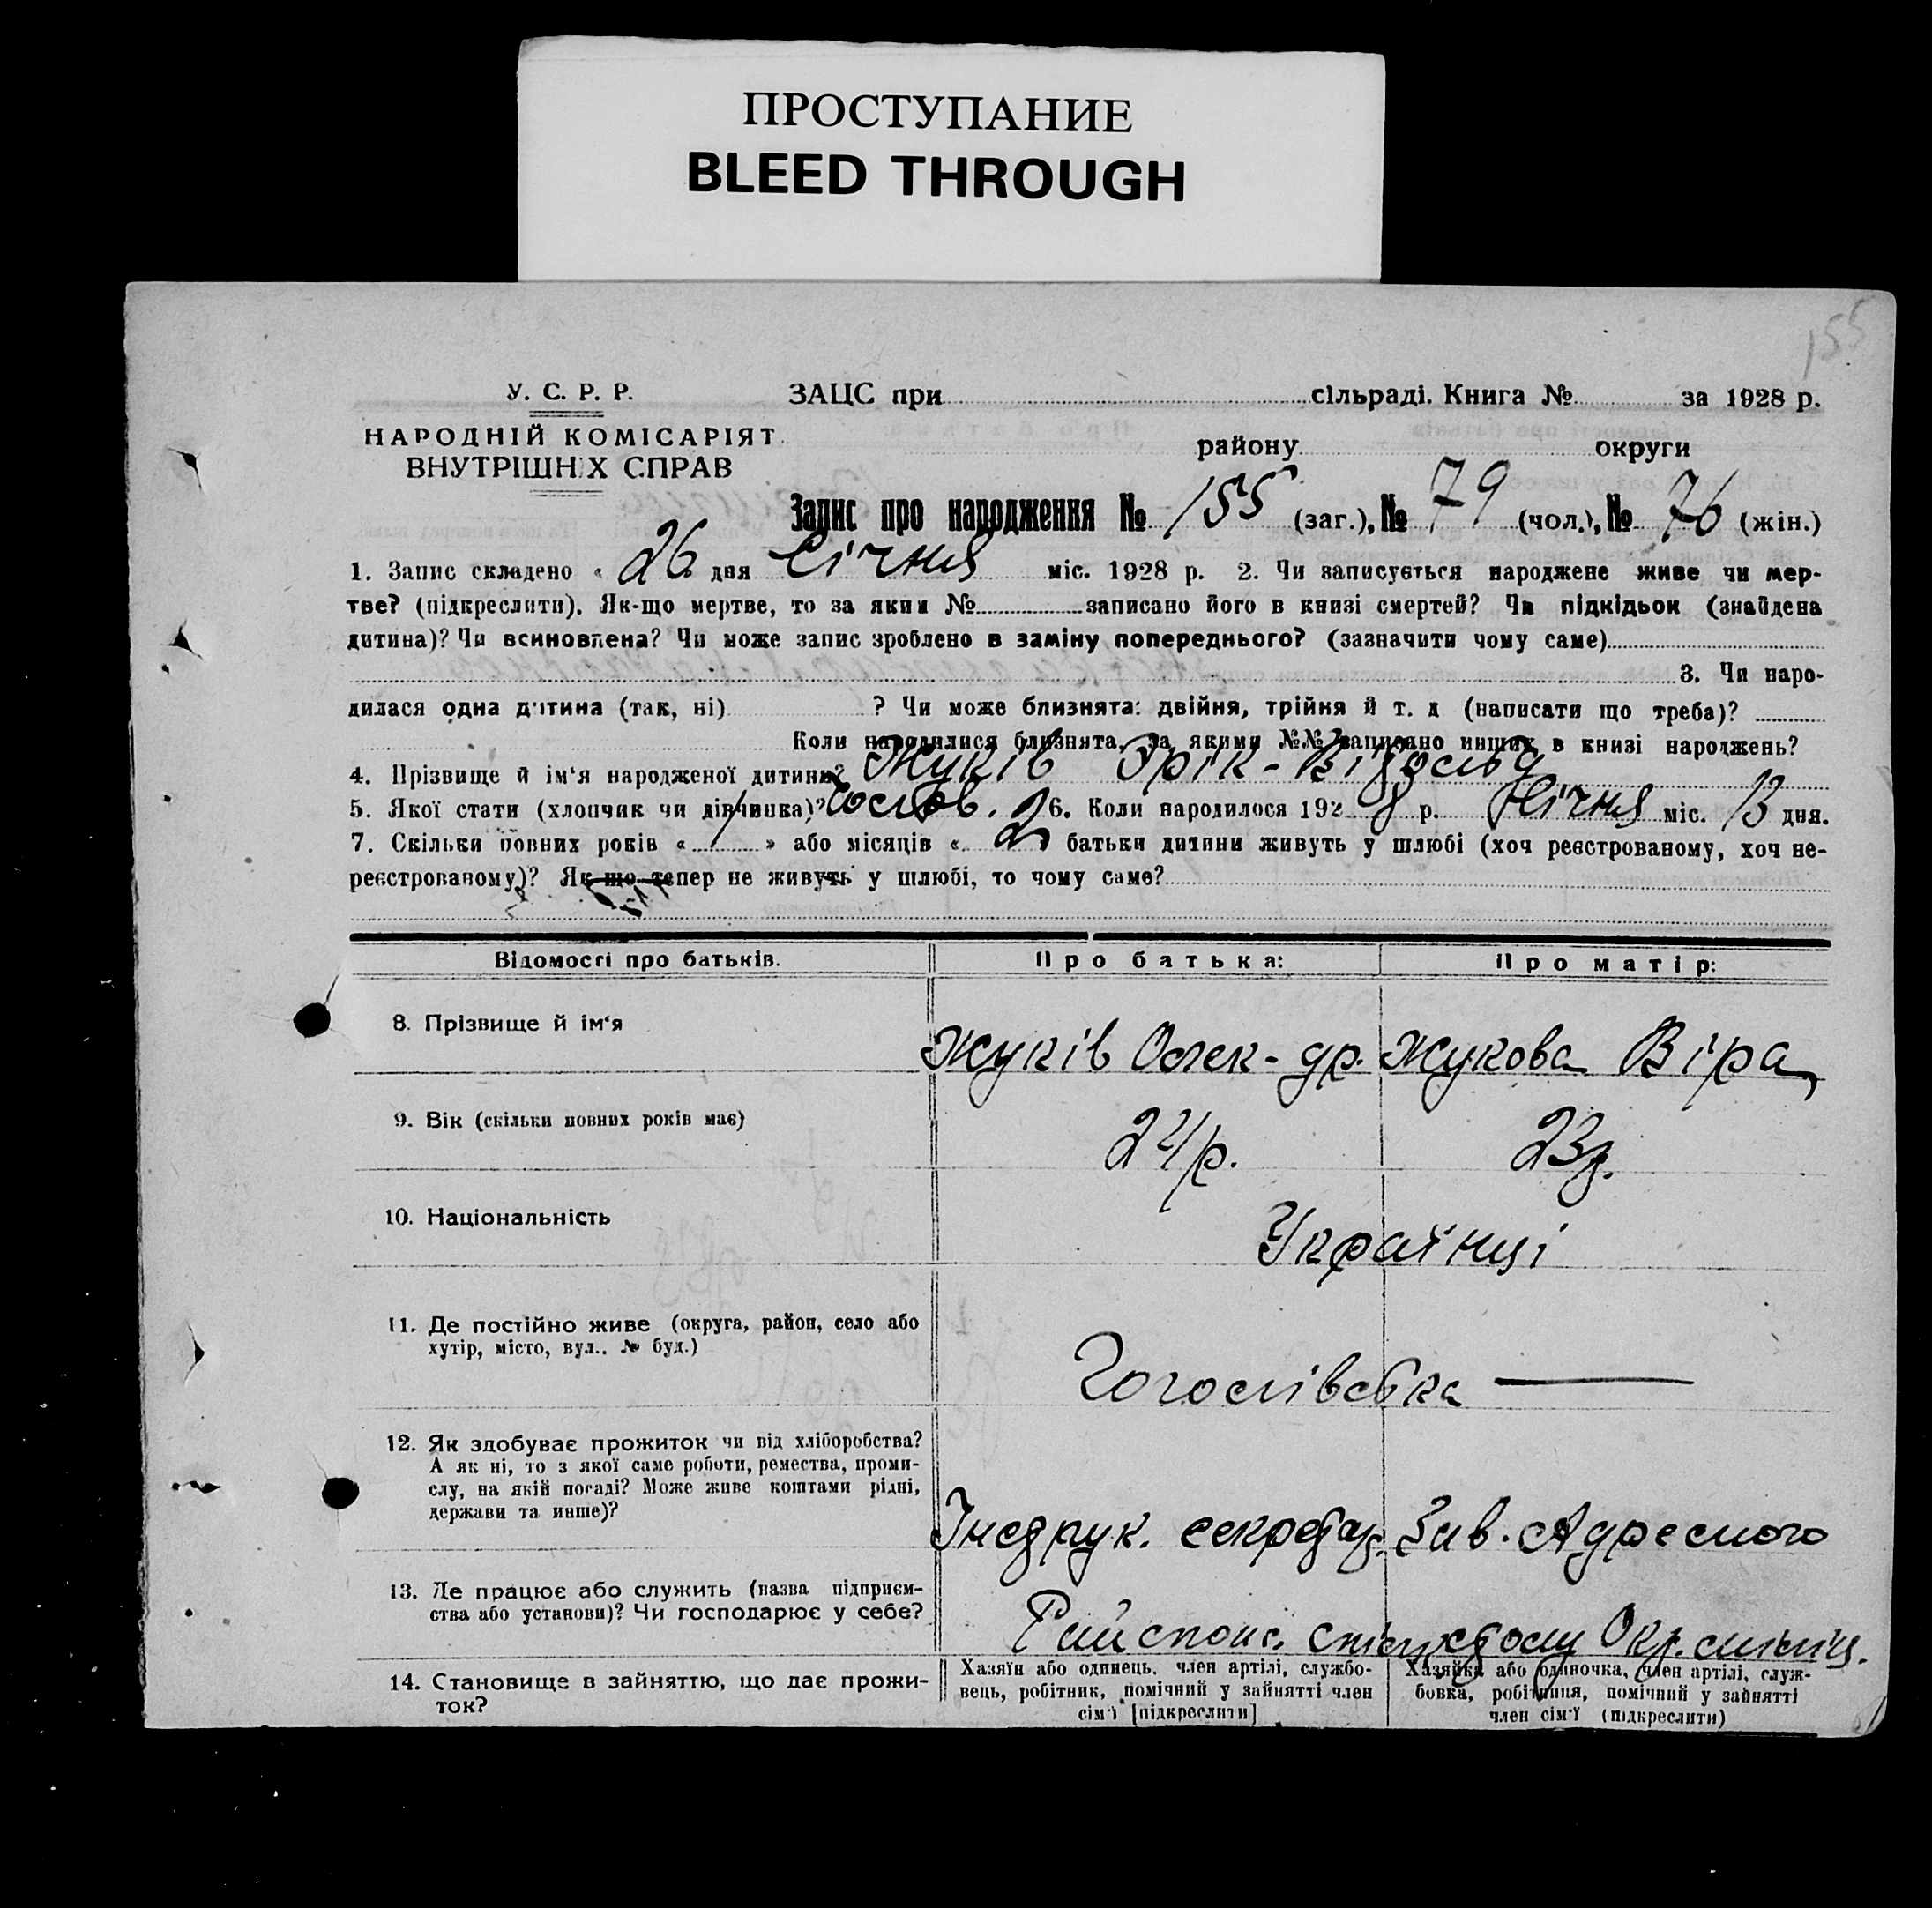 ПРОСТУПАНИЕ
BLEED THROUGH
155
У. С. Р. Р.
НАРОДНІЙ КОМІСАРІЯТ
ВНУТРІШНІХ СПРАВ
ЗАЦС при сільраді. Книга № за 1928 р.
району округи
Запис про народження № 155 (заг.), № 79 (чол.), № 76 (жін.)
1. Запис складено « 26 дня Січня міс. 1928 р. 2. Чи записується народжене живе чи мер-
тве? (підкреслити). Як-що мертве, то за яким № записано його в книзі смертей? Чи підкідьок (знайдена
дитина)? Чи всиновлена? Чи може запис зроблено в заміну попереднього? (зазначити чому саме)
3. Чи наро-
дилася одна дитина (так, ні) ? Чи може близнята: двійня, трійня й т. д (написати що треба)?
Коли народилися близнята, за якими №№ записано инших в книзі народжень?
4. Прізвище й ім‘я народженої дитини? Жуків Ерік-
5. Якої стати (хлопчик чи дівчинка)? 6. Коли народилося 192 8 р. Січня міс. 13 дня.
7. Скільки повних років « 1 » або місяців « 2 батьки дитини живуть у шлюбі (хоч реєстрованому, хоч не-
реєстрованому)? Як що тепер не живуть у шлюбі, то чому саме?
Відомості про батьків. Про батька: Про матір:
8. Прізвище й ім‘я
Жуків Олек-др. Жукова Віра
9. Вік (скільки повних років має)
24 р. 23 р.
10. Національність
Українці
11. Де постійно живе (округа, район, село або
хутір, місто, вул.. № буд.)
Гоголівська
12. Як здобуває прожиток чи від хліборобства?
А як ні, то з якої саме роботи, ремества, проми-
слу, на якій посаді? Може живе коштами рідні,
держави та инше)?
секретар. Зав. Адресного
13. Де працює або служить (назва підприєм-
ства або установи)? Чи господарює у себе?
столу Окр. міліц.
14. Становище в зайняттю, що дає прожи-
ток?
Хазяїн або одинець, член артілі, службо-
вець, робітник, помічний у зайнятті член
сім‘ї [підкреслити]
Хазяйка або одиночка, член артілі, служ-
бовка, робітниця, помічний у зайнятті
член сім‘ї (підкреслити)